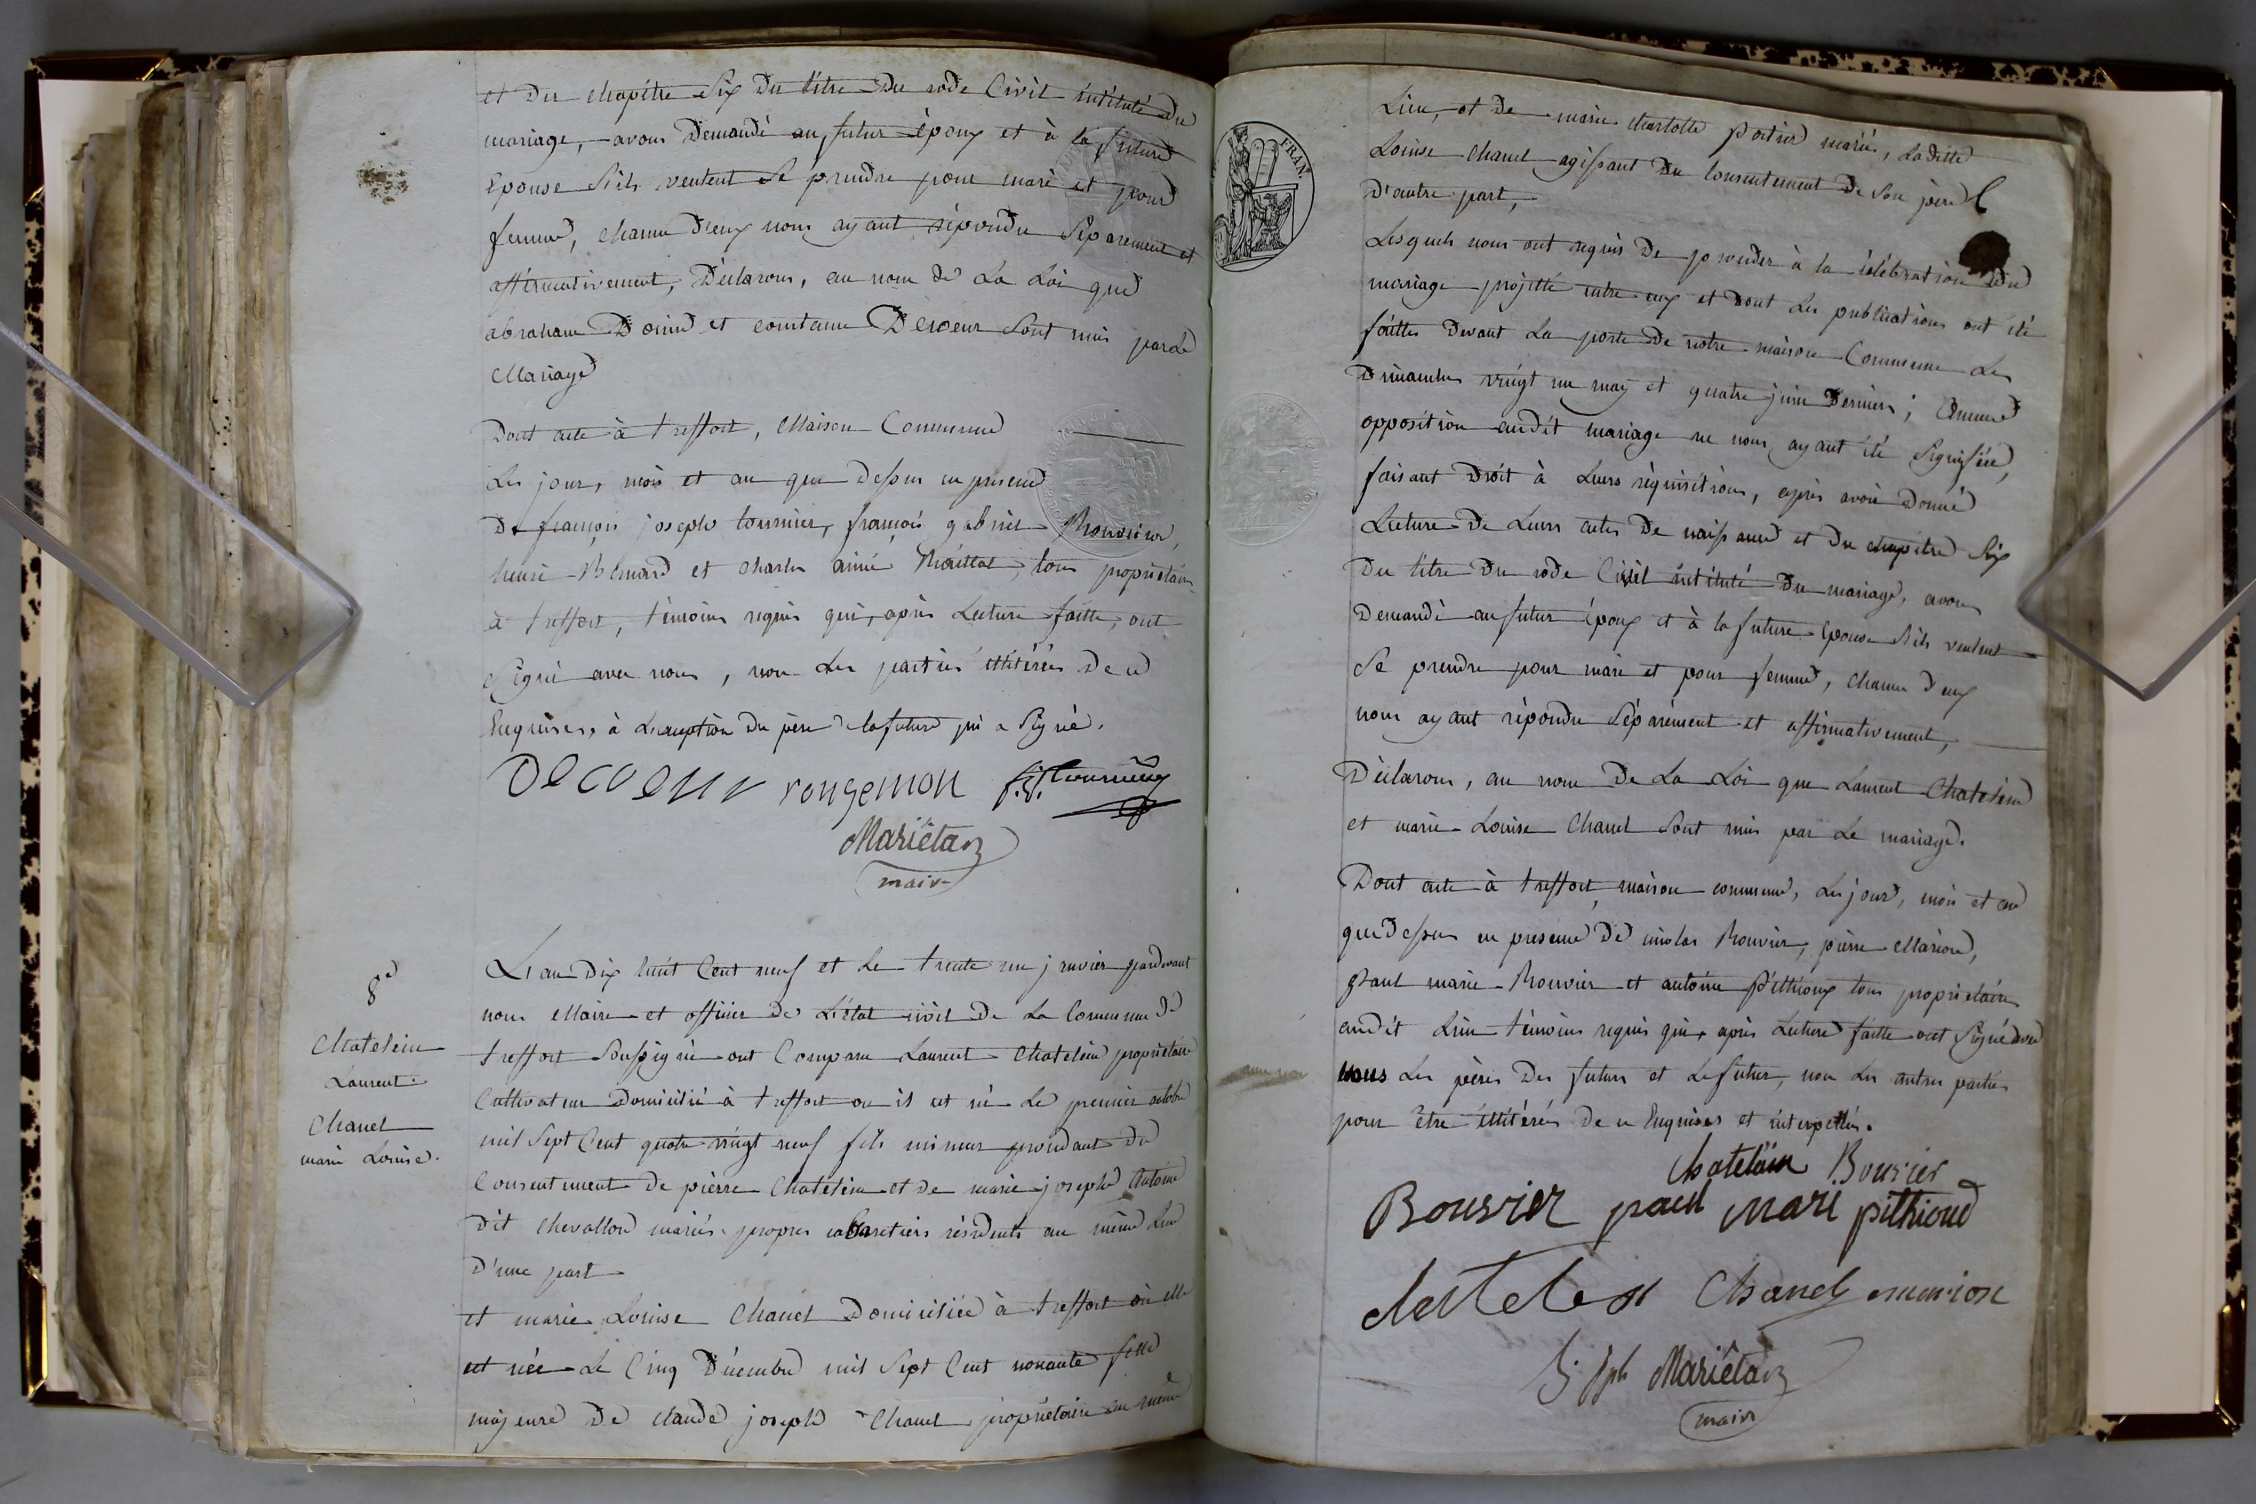 et du chapitre Six du titre du code Civil intitulé du
mariage, avons demandé au futur époux et à la future
Epouse S'ils veulent Se prendre pour mari et pour
femme, chacun d'eux nous ayant répondu Séparement et
affirmativement, Déclarons, au nom de La Loi que
abraham et Decoeur Sont unis par Le
Mariage
Dont acte à treffort, Maison Commune
Les jour, mois et an que dessus en présence
De françois joseph tournier, françois gabriel
henri et charles aimé tous propriétaires
à treffort, témoins requis qui, après Lecture faitte, ont
Signé avec nous, non Les parties illitérées De ce
Enquises, à L'exception du père la future qui a Signé.
Decoeur rougemon f. J. tournier
Mariétan
maire
8e
Chatelein
Laurent.
Chanel
marie Louise.
L'an Dix huit Cent neuf et Le trente un janvier pardevant
nous Maire et officier de L'état civil De La Commune de
treffort Soussigné ont Comparu Laurent Chatelein propriétaire
Cultivateur Domicilié à treffort ou il est né Le premier octobre
mil Sept Cent quatre vingt neuf fils mineur procédant du
Consentement de pierre Chatelein et de marie joseph Antoine
dit Chevallon mariés propres cabaretiers résidents au même Lieu
D'une part
et marie Louise Chanel Domiciliée à treffort où elle
est née Le Cinq Décembre mil Sept Cent nonante fille
majeure De claude joseph Chanel propriétaire au même
Lieu, et de marie charlotte mariés, Laditte
Louise Chanel agissant Du Consentement De Son père
D'autre part,
Lesquels nous ont requis De procéder à la célébration du
mariage projetté entre eux et dont Les publications ont été
faittes Devant La porte De notre maison Commune Les
Dimanches vingt un may et quatre juin Derniers; Aucune
opposition audit mariage ne nous ayant été Signifiée,
faisant Droit à Leurs réquisitions, après avoir Donné
Lecture De Leurs actes De naissance et du chapitre Six
Du titre Du code Civil intitulé Du mariage, avons
Demandé au futur époux et à la future Epouse S'ils veulent
Se prendre pour mari et pour femme, chacun d'eux
nous ayant répondu Séparément et affirmativement,
Déclarons, au nom De La Loi que Laurent Chatelein
et marie Louise Chanel Sont unis par Le mariage.
Dont acte à treffort, maison commune, Les jour, mois et an
que dessus en présence De nicolas Bouvier, pierre Marion,
paul marie Bouvier et antoine Pithioux tous propriétaires
audit Lieu témoins requis qui, après Lecture faitte ont Signé avec
nous Les pères Des futurs et Le futur, non Les autres parties
pour être illitérées De ce Enquises et interpellés.
Chatelain Bouvier
Bouvier paul mari pithioud
Chanel marion
Jph Mariétan
maire
FRAN.